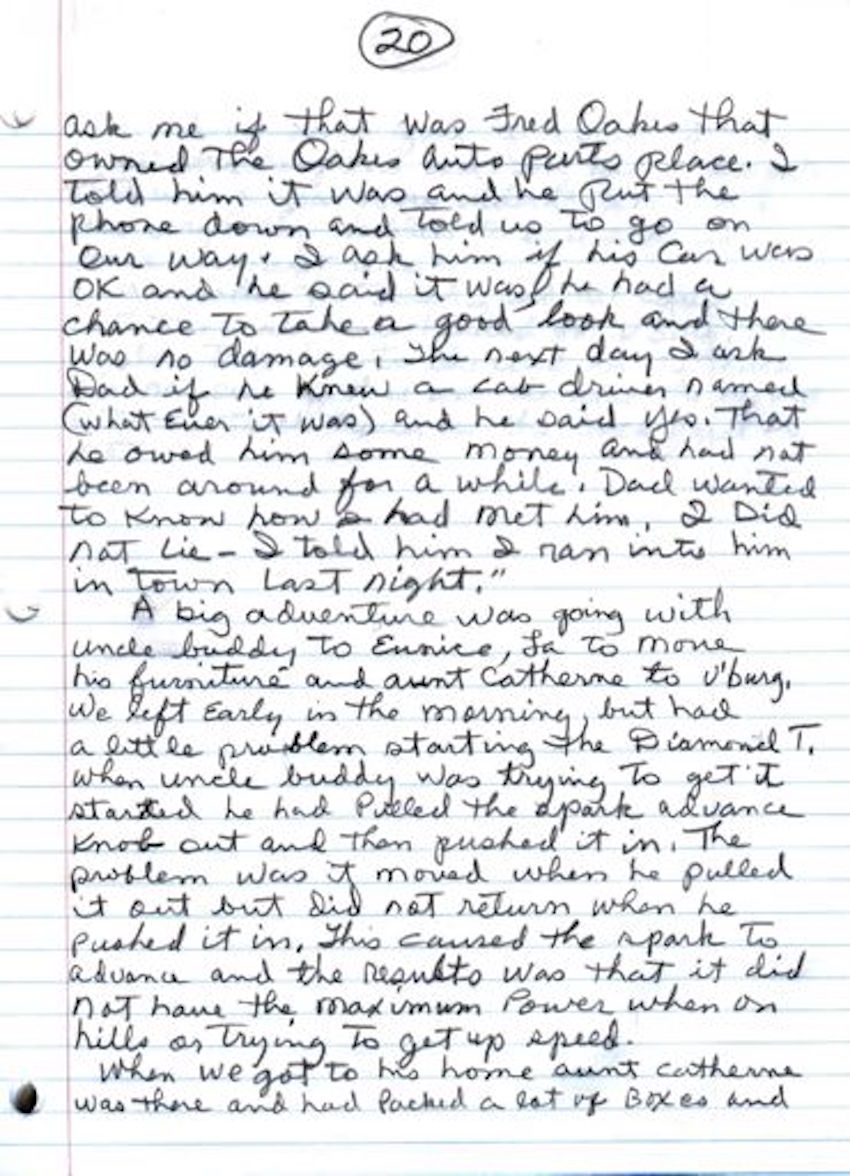 20
ask me if that was Fred Oakes that
owned the Oakes Auto Parts place. I
told him it was and he put the
phone down and told us to go on
our way. I ask him if his car was
OK and he said it was, he had a
chance to take a good look and there
was no damage. The next day I ask
Dad if he knew a cab driver named
(what Ever it was) and he said yes. That
he owed him some money and had not
been around for a while. Dad wanted
to know how I had met him, I Did
not Lie - I told him I ran into him
in town Last night."
A big adventure was going with
uncle buddy to Eunice, La to move
his furniture and aunt Catherine to V'burg.
We left Early in the morning, but had
a little problem starting the Diamond T.
when uncle buddy was trying to get it
started he had Pulled the spark advance
Knob out and then pushed it in. The
problem was it moved when he pulled
it out but Did not return when he
pushed it in. This caused the spark to
advance and the results was that it did
not have the maximum Power when on
hills or trying to get up speed.
When we got to his home aunt catherine
was there and had Packed a lot of Boxes and